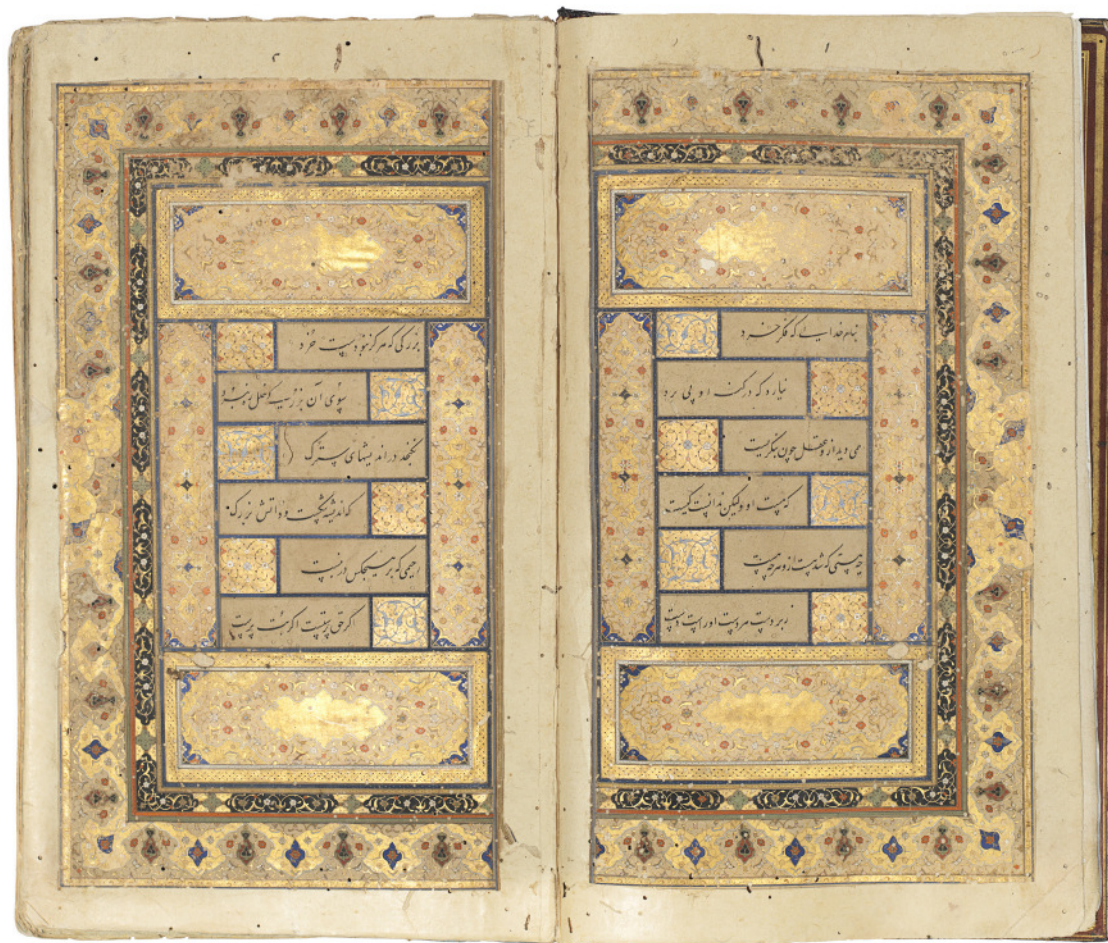 بنام خدایی که فکر خرد
نیارد که در کنه او پی برد
دید ازو عقل چون بنگریست
که هست او ولیکن ندانست کیست
چه هستی که شد هست ازو هرچه هست
زبردست هر دست اوراست دست
بزرگی که هرگز نبودست خرد
سوی آن بزرگیست
نگنجد در اندیشهای سترگ
که اندیشه و ذاتش بزرگ
رحیمی که بر هیچکس در نبست
اگر حق پرستست اگر بت پرست